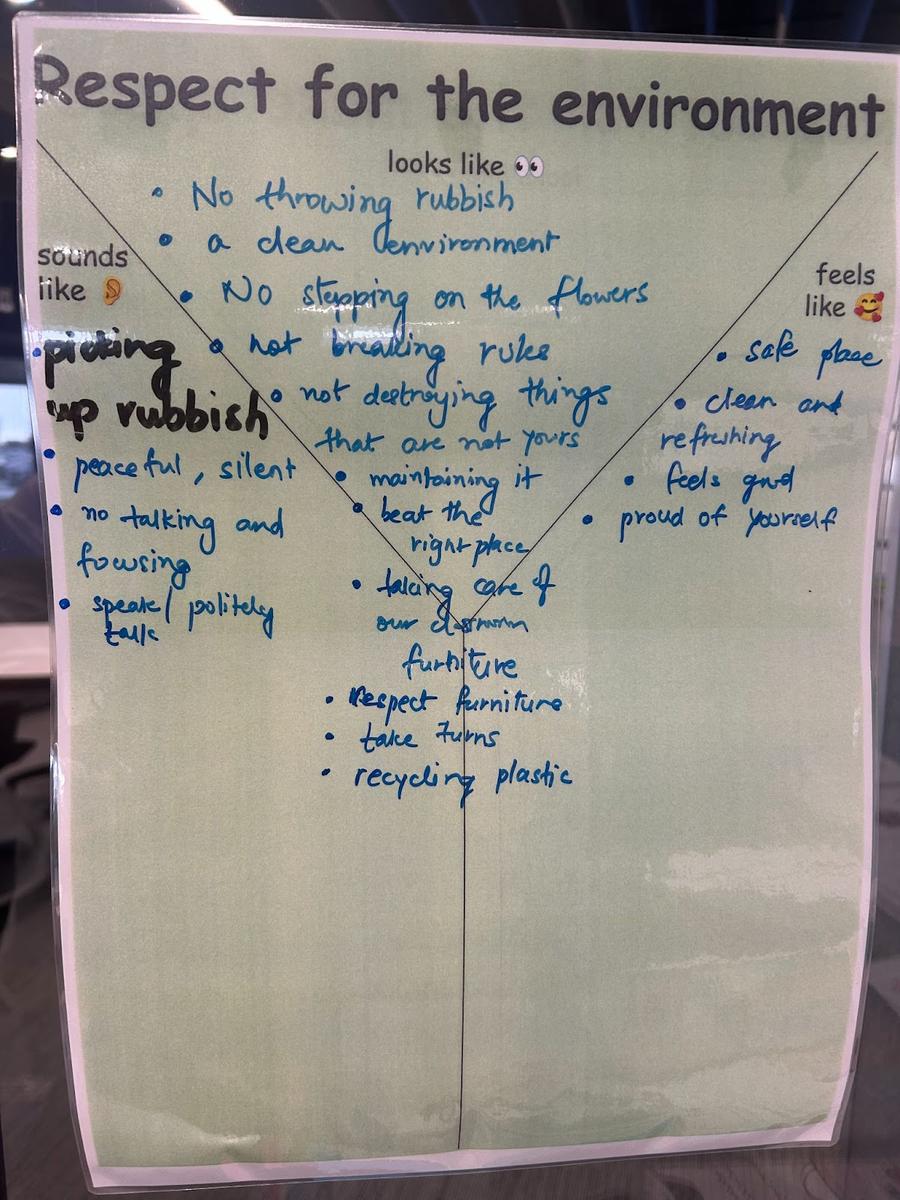 Respect for the environment
looks like 👀
• No throwing rubbish
• a clean environment
• No stepping on the flowers
• not breaking rules
• not destroying things
that are not yours
• maintaining it
• beat the
right place
• taking care of
our
furniture
• Respect furniture
• take turns
• recycling plastic
sounds
like 👂
• picking
up rubbish
• peaceful, silent
• no talking and
focusing
• speak/ politely
talk
feels
like 🥰
• safe place
• clean and
refreshing
• feels good
• proud of yourself